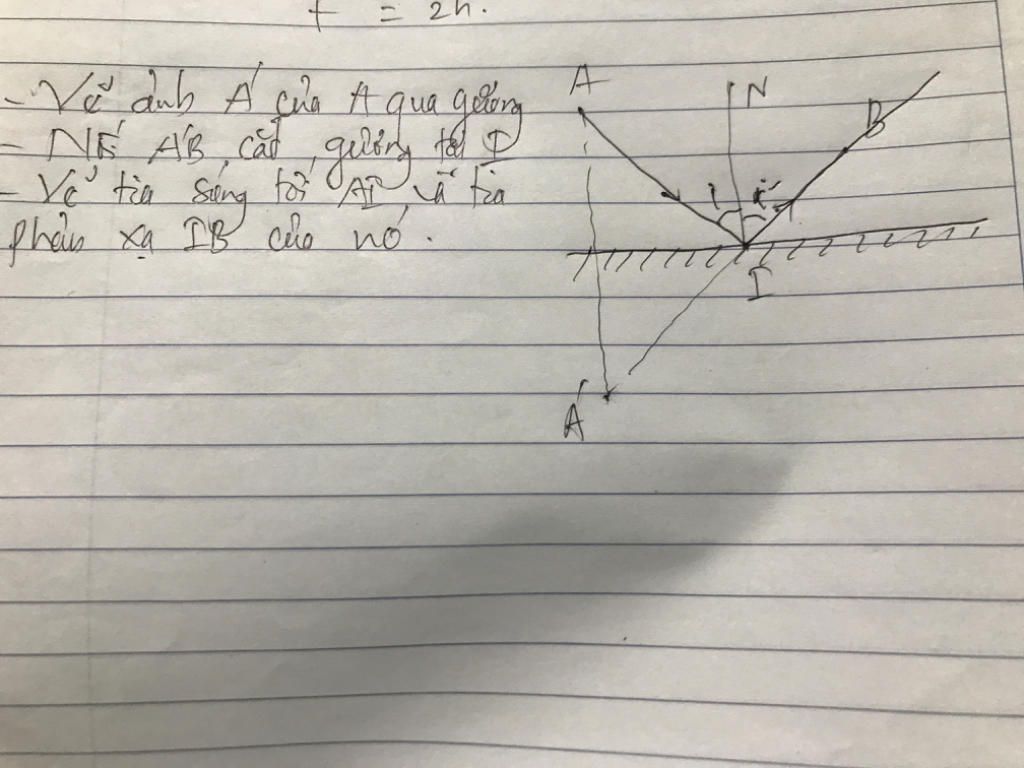 = 2h.
- Vẽ ảnh A' của A qua gương
- Nối A'B, cắt gương tại I
- Vẽ tia sáng tới AI, và tia
phản xạ IB của nó.
A
N
B
i
i'
I
A'